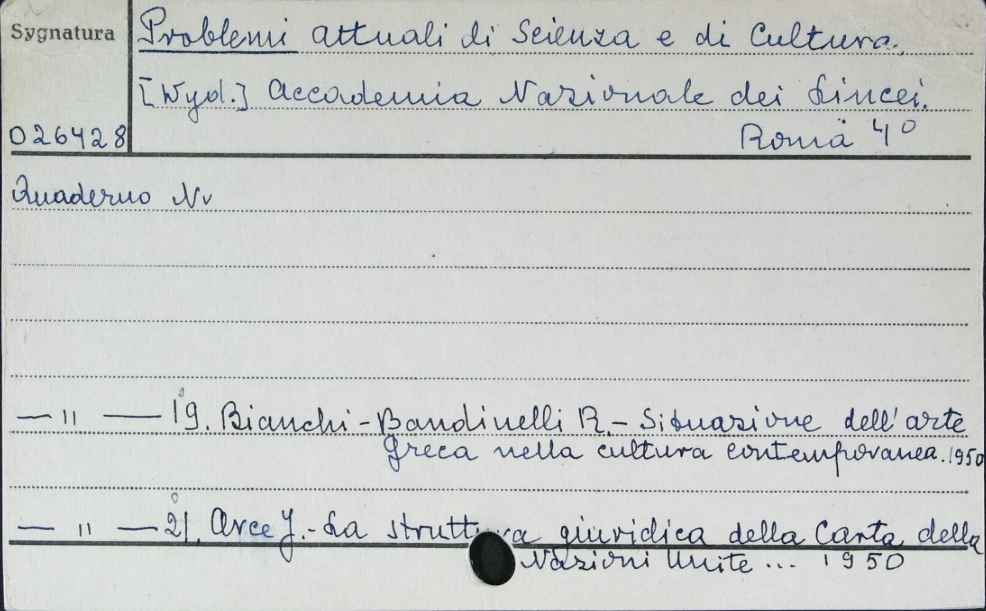 Sygnatura
Problemi attuali di Scienza e di Cultura.
[Wyd.] Accademia Nazionale dei Lincei.
026428
Roma 4°
Quaderno Nr
— " — 19. Bianchi-Bandinelli R. - Situazione dell'arte
greca nella cultura contemporanea. 1950
— " — 21. Arce J. - La struttura giuridica della Carta della
Nazioni Unite ... 1950